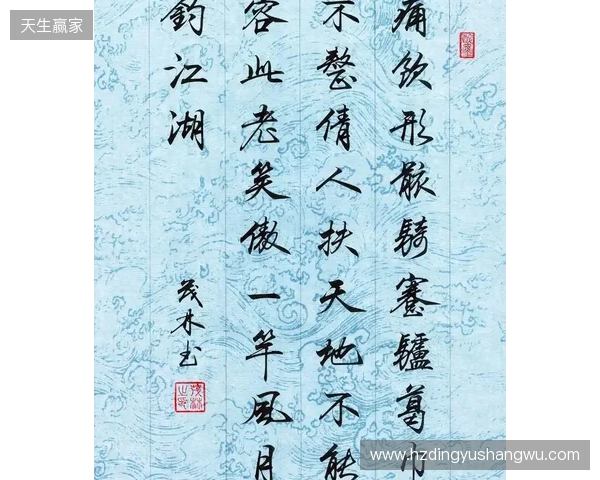 天生赢家
痛饮形骸騎蹇驢葛巾
不整倩人扶天地不能
容此老笑傲一竿風月
釣江湖
茂林书
www.hzdingyushangwu.com